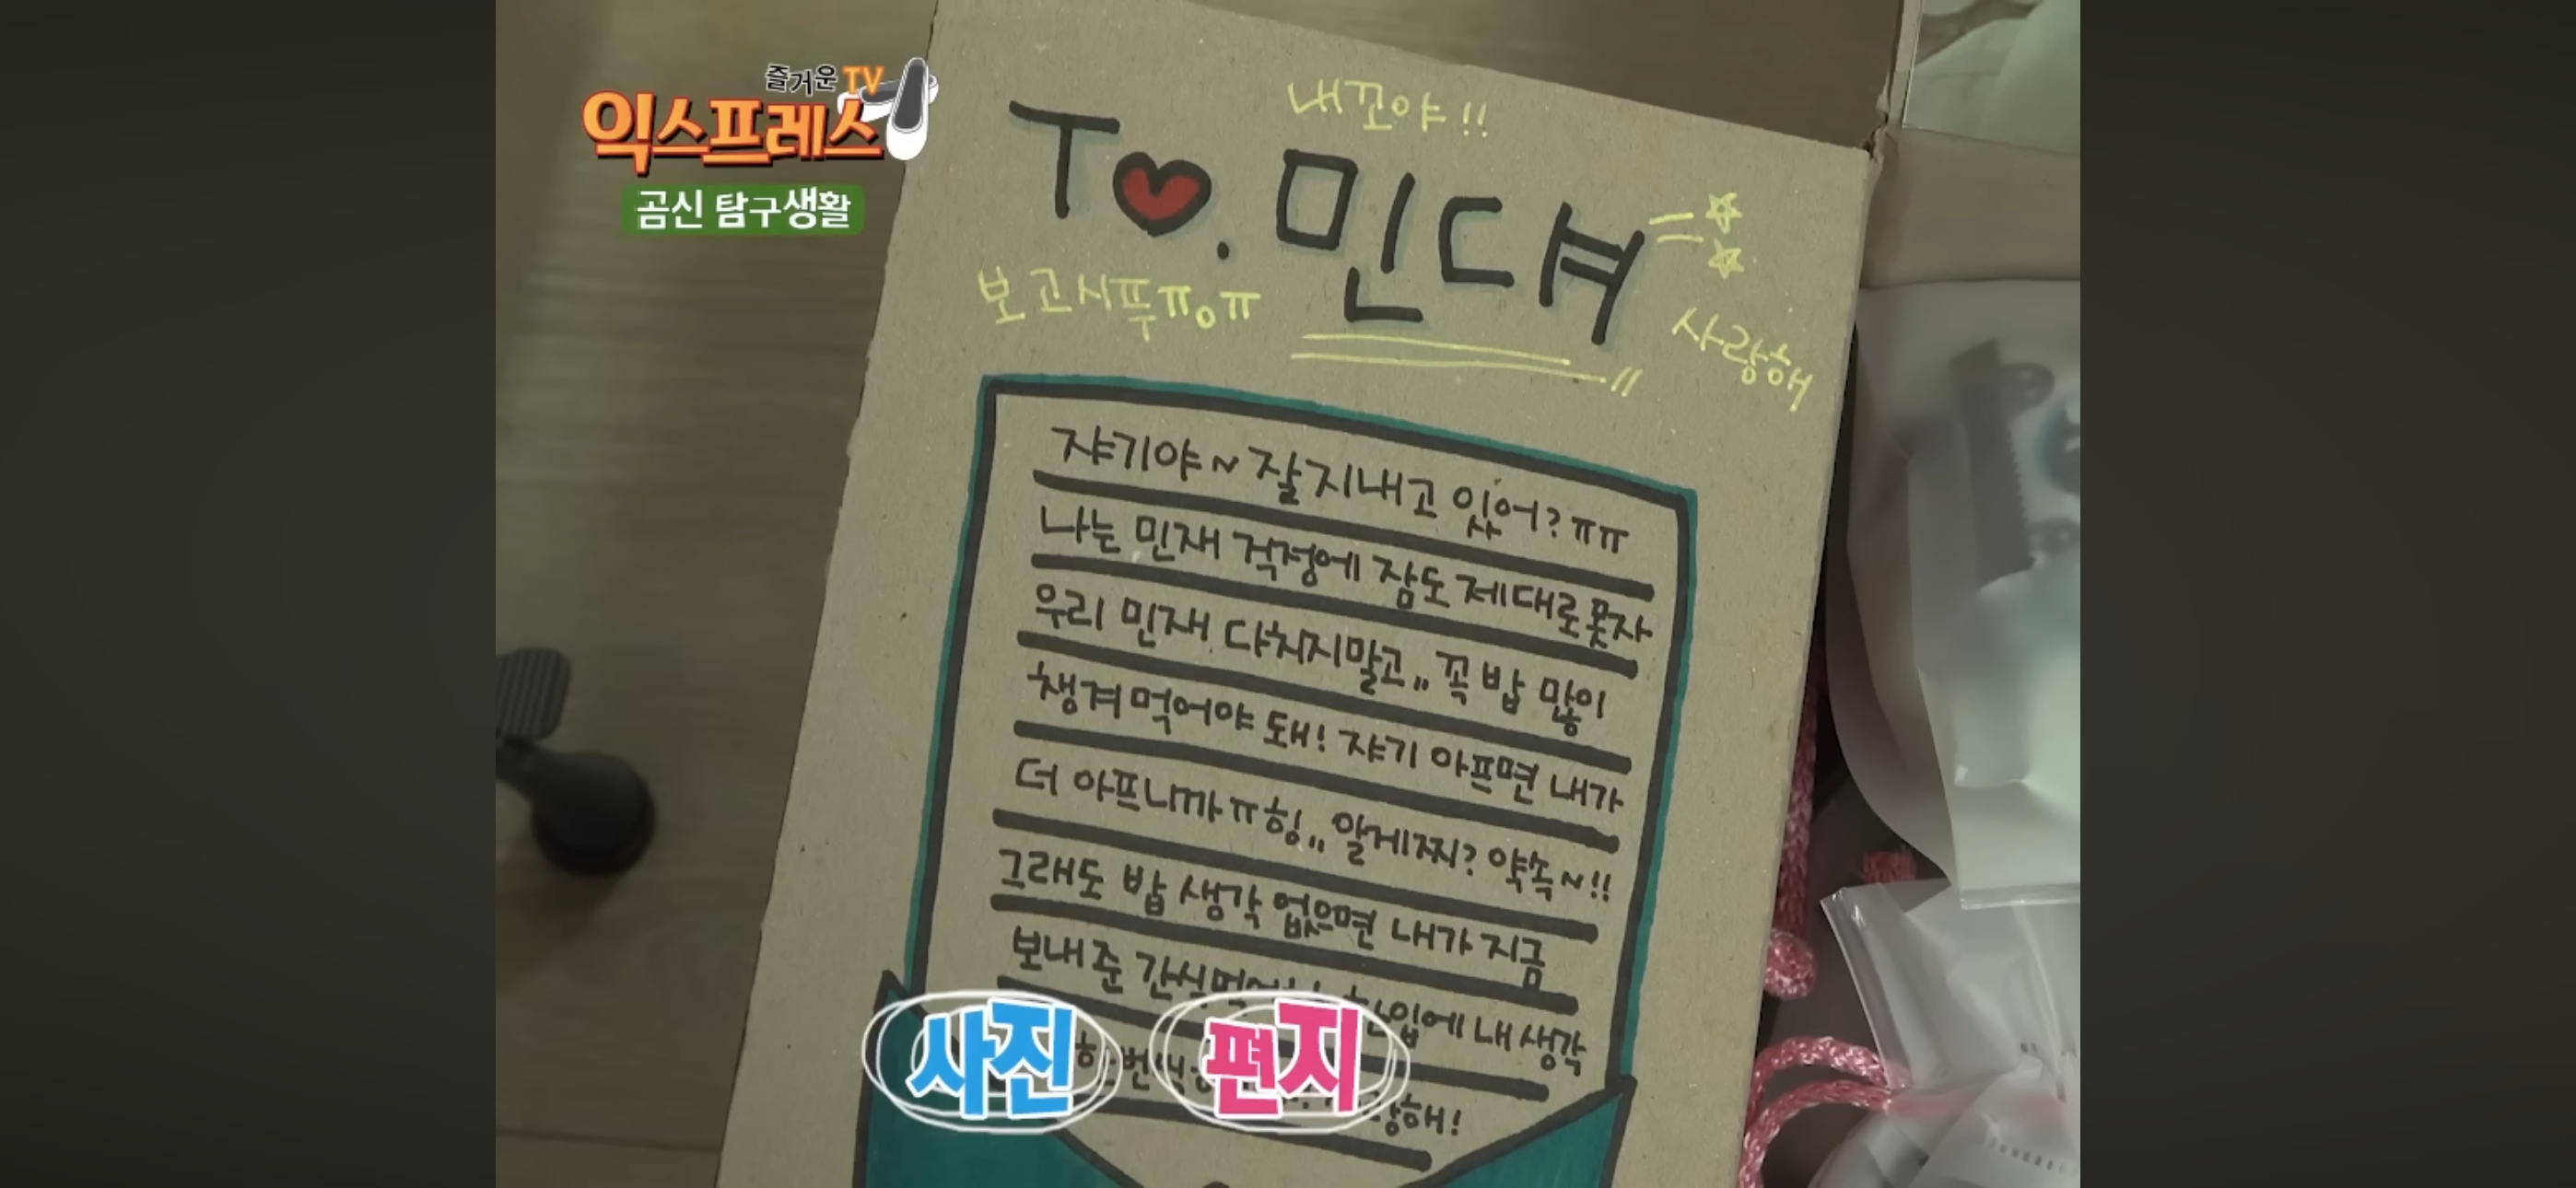 즐거운TV
익스프레스
곰신 탐구생활
내꼬야!!
T♥. 민댜ㅕ
보고시푸ㅠㅇㅠ
사랑해
쟈기야~잘지내고 있어?ㅠㅠ
나는 민재 걱정에 잠도 제대로못자
우리 민재 다치지말고,, 꼭 밥 많이
챙겨먹어야 돼! 쟈기 아프면 내가
더 아프니까ㅠ힝,, 알게찌? 약속~!!
그래도 밥 생각 없으면 내가 지금
보내준 간식 내 생각
사진 편지